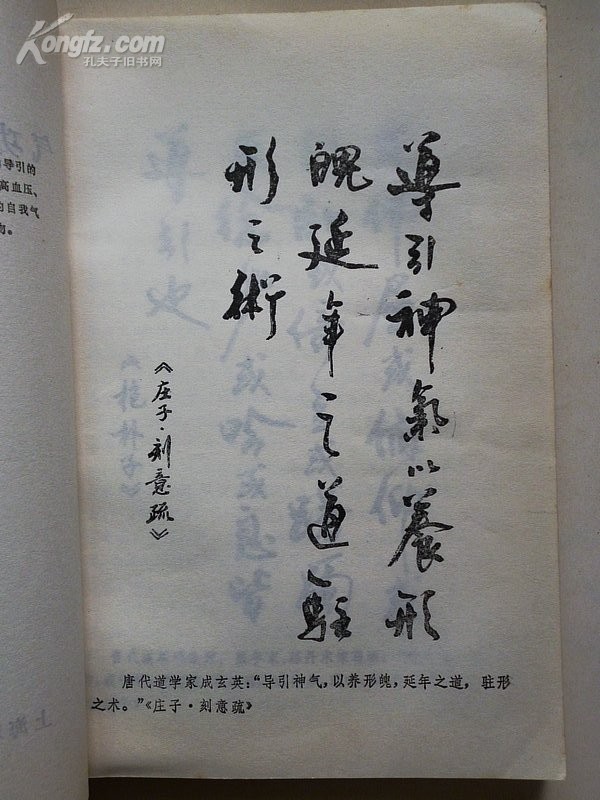 Kongfz.com
孔夫子旧书网
導引神氣以養形
魄延年之道駐
形之術
《庄子·刻意疏》
唐代道学家成玄英：“导引神气，以养形魄，延年之道，驻形
之术。”《庄子·刻意疏》
气功
导引的
高血压、
的自我气